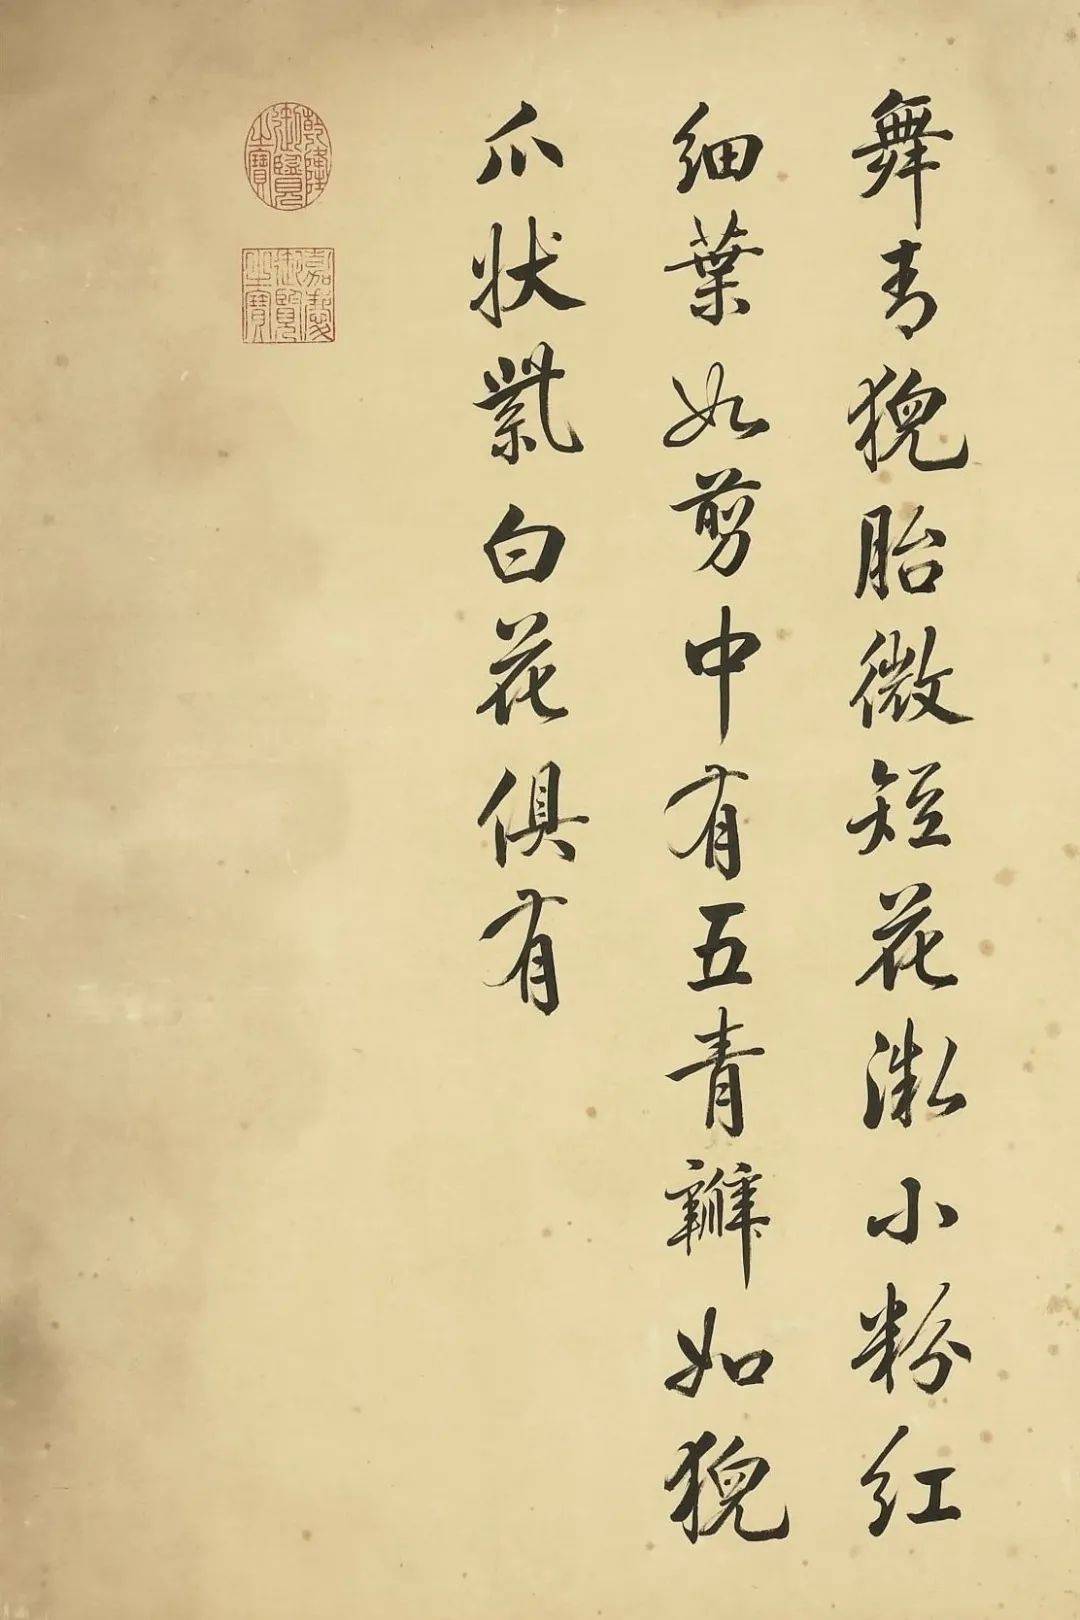 舞青猊胎微短花小粉紅
細葉如剪中有五青瓣如猊
爪狀紫白花俱有
乾隆御覽之寶
嘉慶御覽之寶